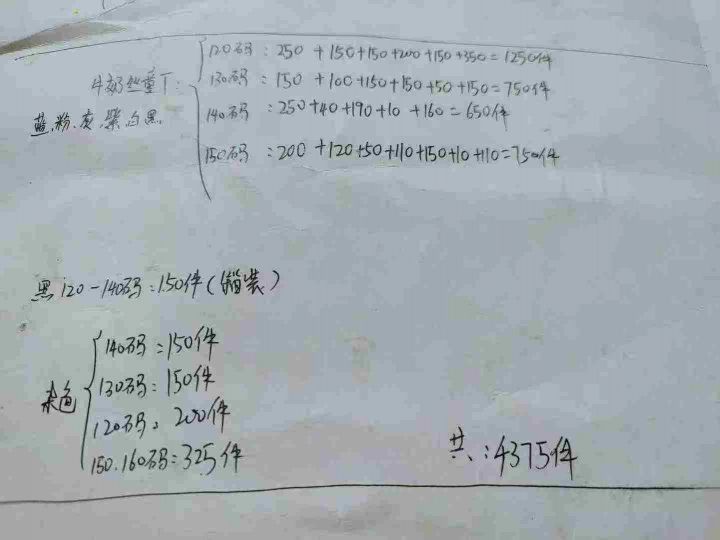 120码：250+150+150+200+150+350=1250件
牛奶丝童T：
130码：150+100+150+150+50+150=750件
蓝、粉、灰、紫、白、黑、
140码：250+40+190+10+160=650件
150码：200+120+50+110+150+10+110=750件
黑120-140码：150件（箱装）
140码：150件
130码：150件
杂色
120码：200件
150.160码：325件
共：4375件